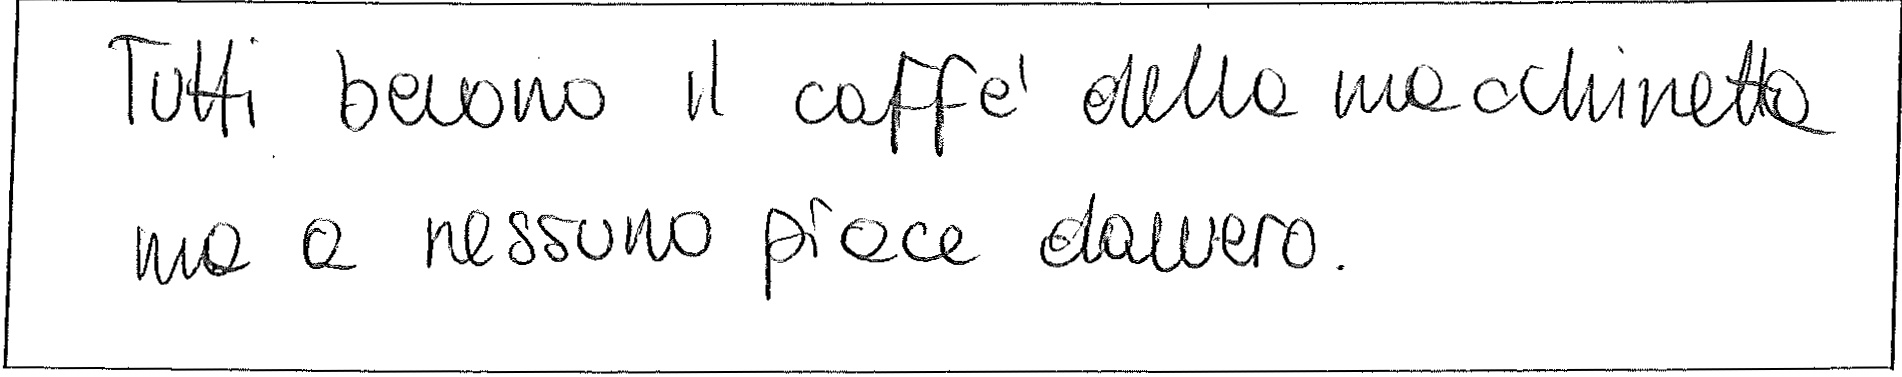 Tutti bevono il caffe' della macchinetta
ma a nessuno piace davvero.